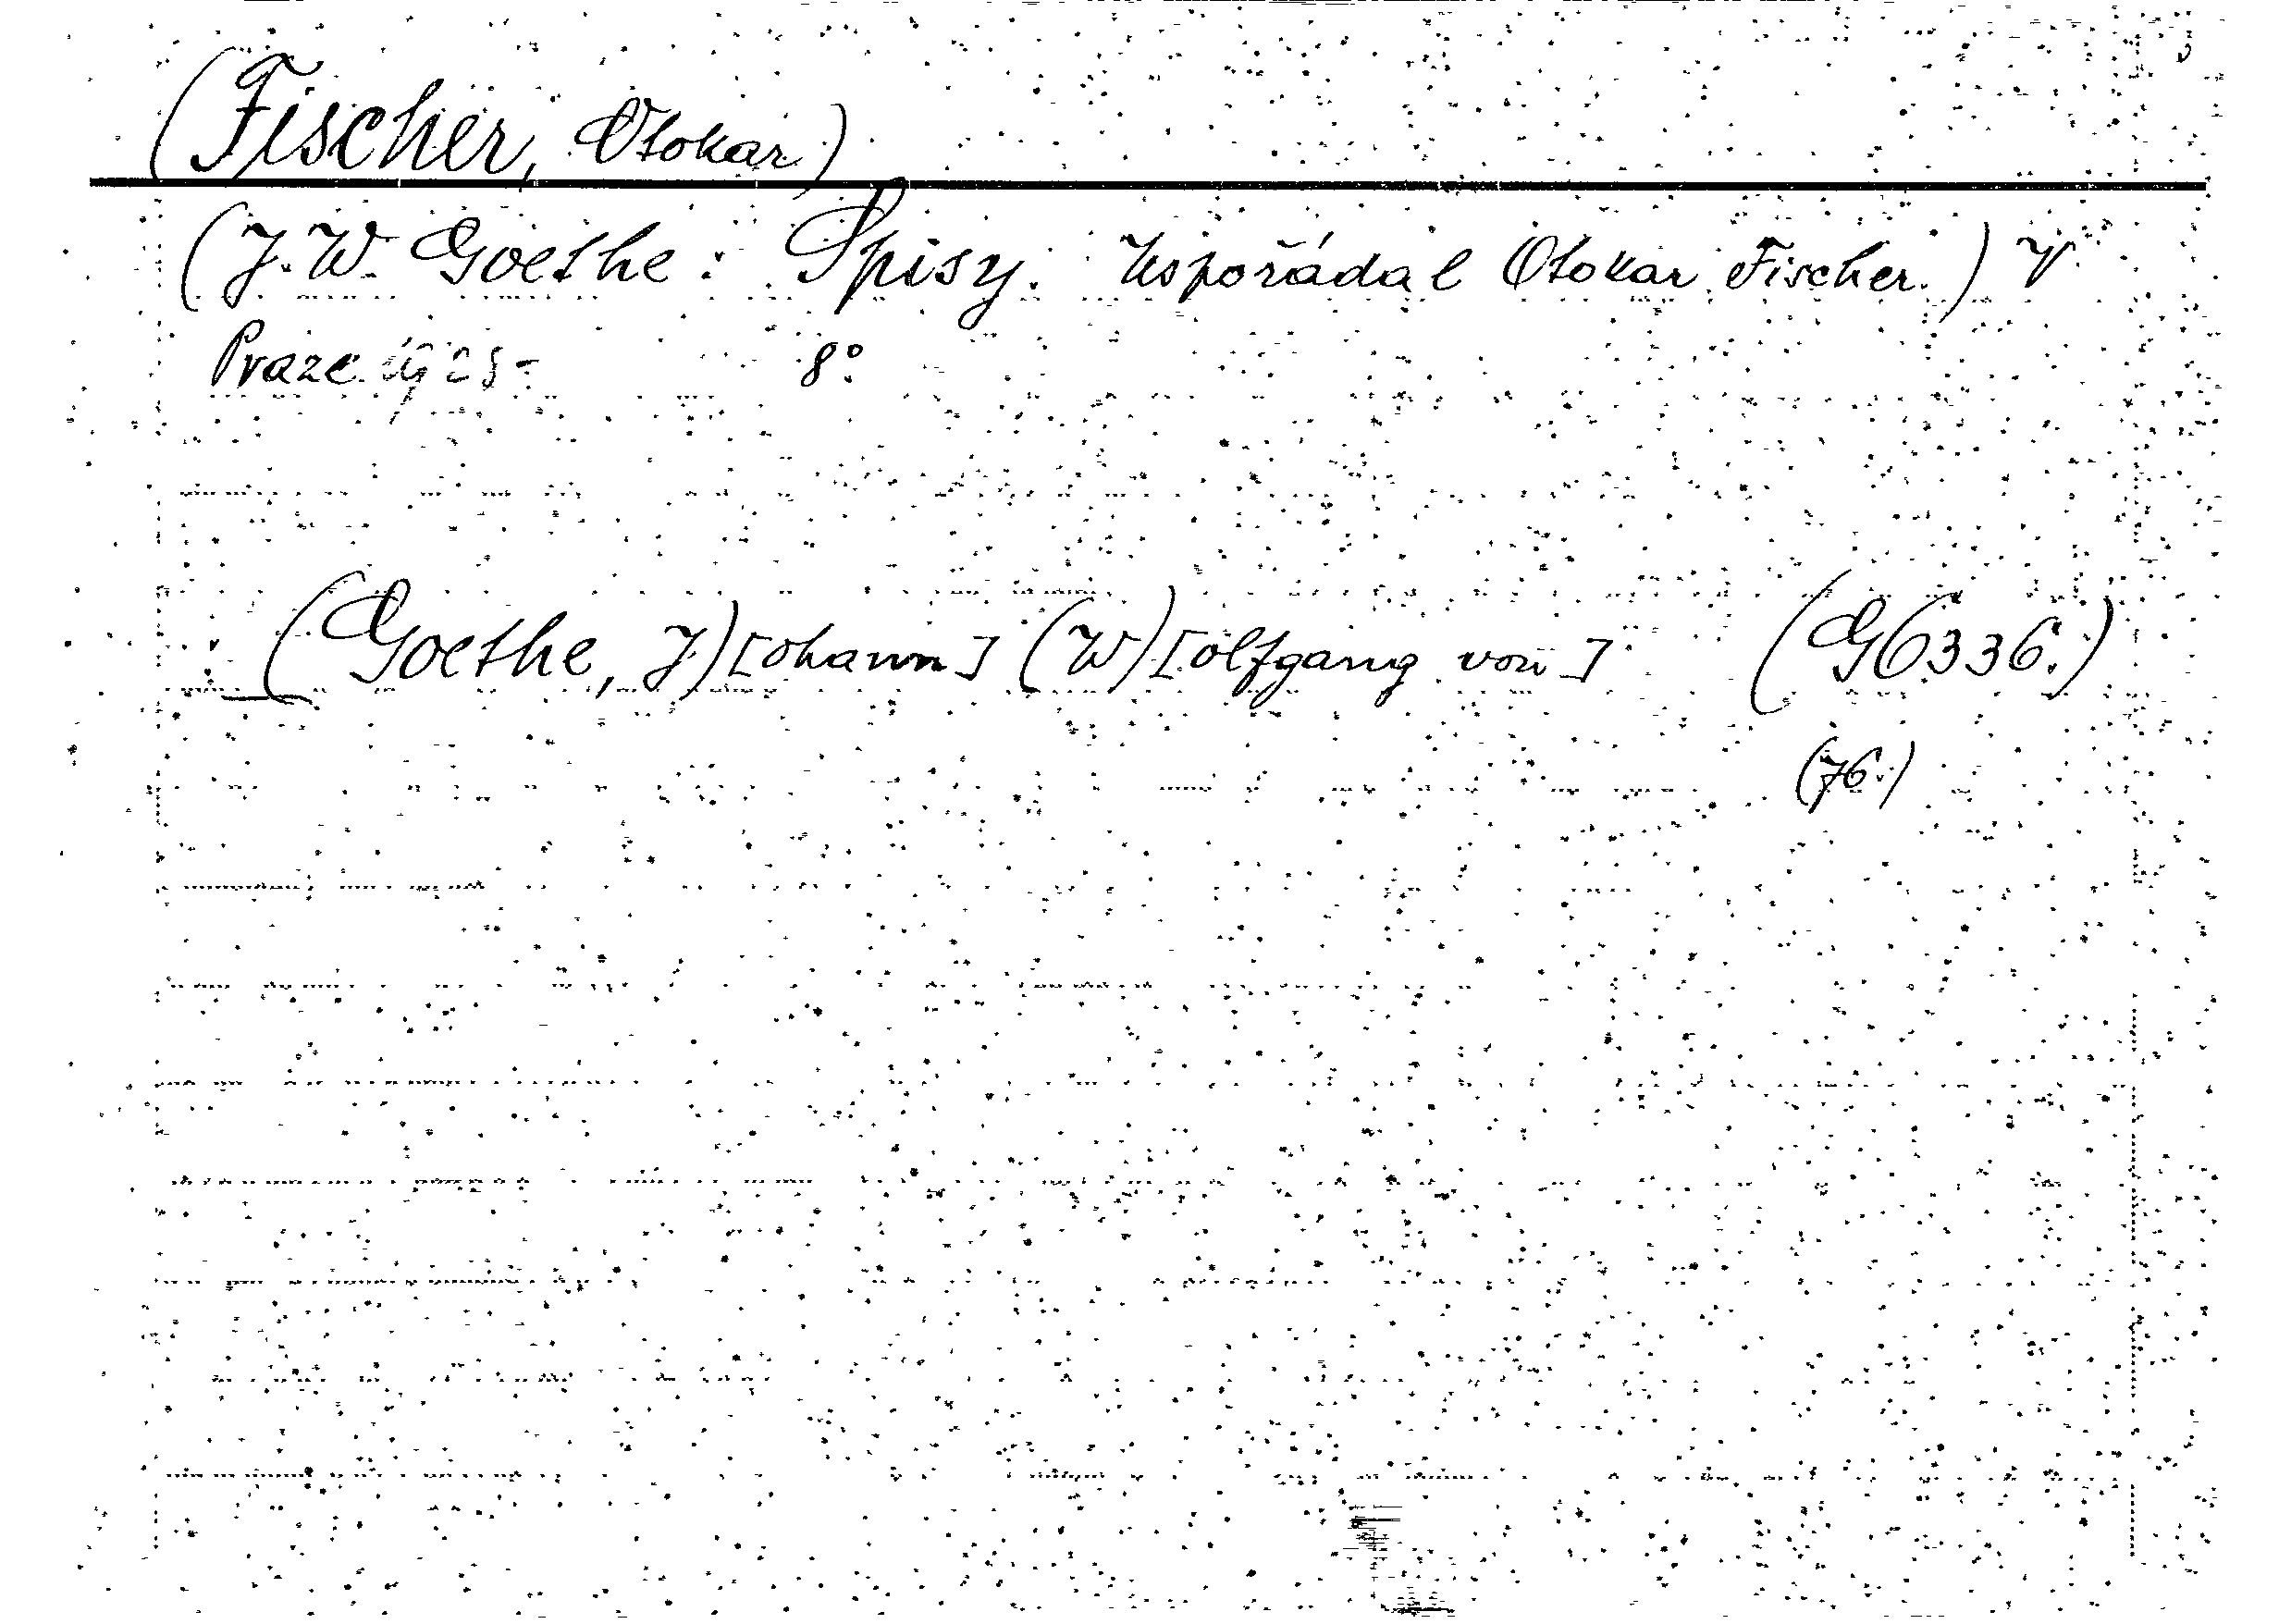 (Fischer, Otokar)
(J. W. Goethe: Spisy. Uspořádal Otokar Fischer.) V
Praze 1928- 8°
(Goethe, J)[ohann] (W)[olfgang von] (G6336.)
(76.)